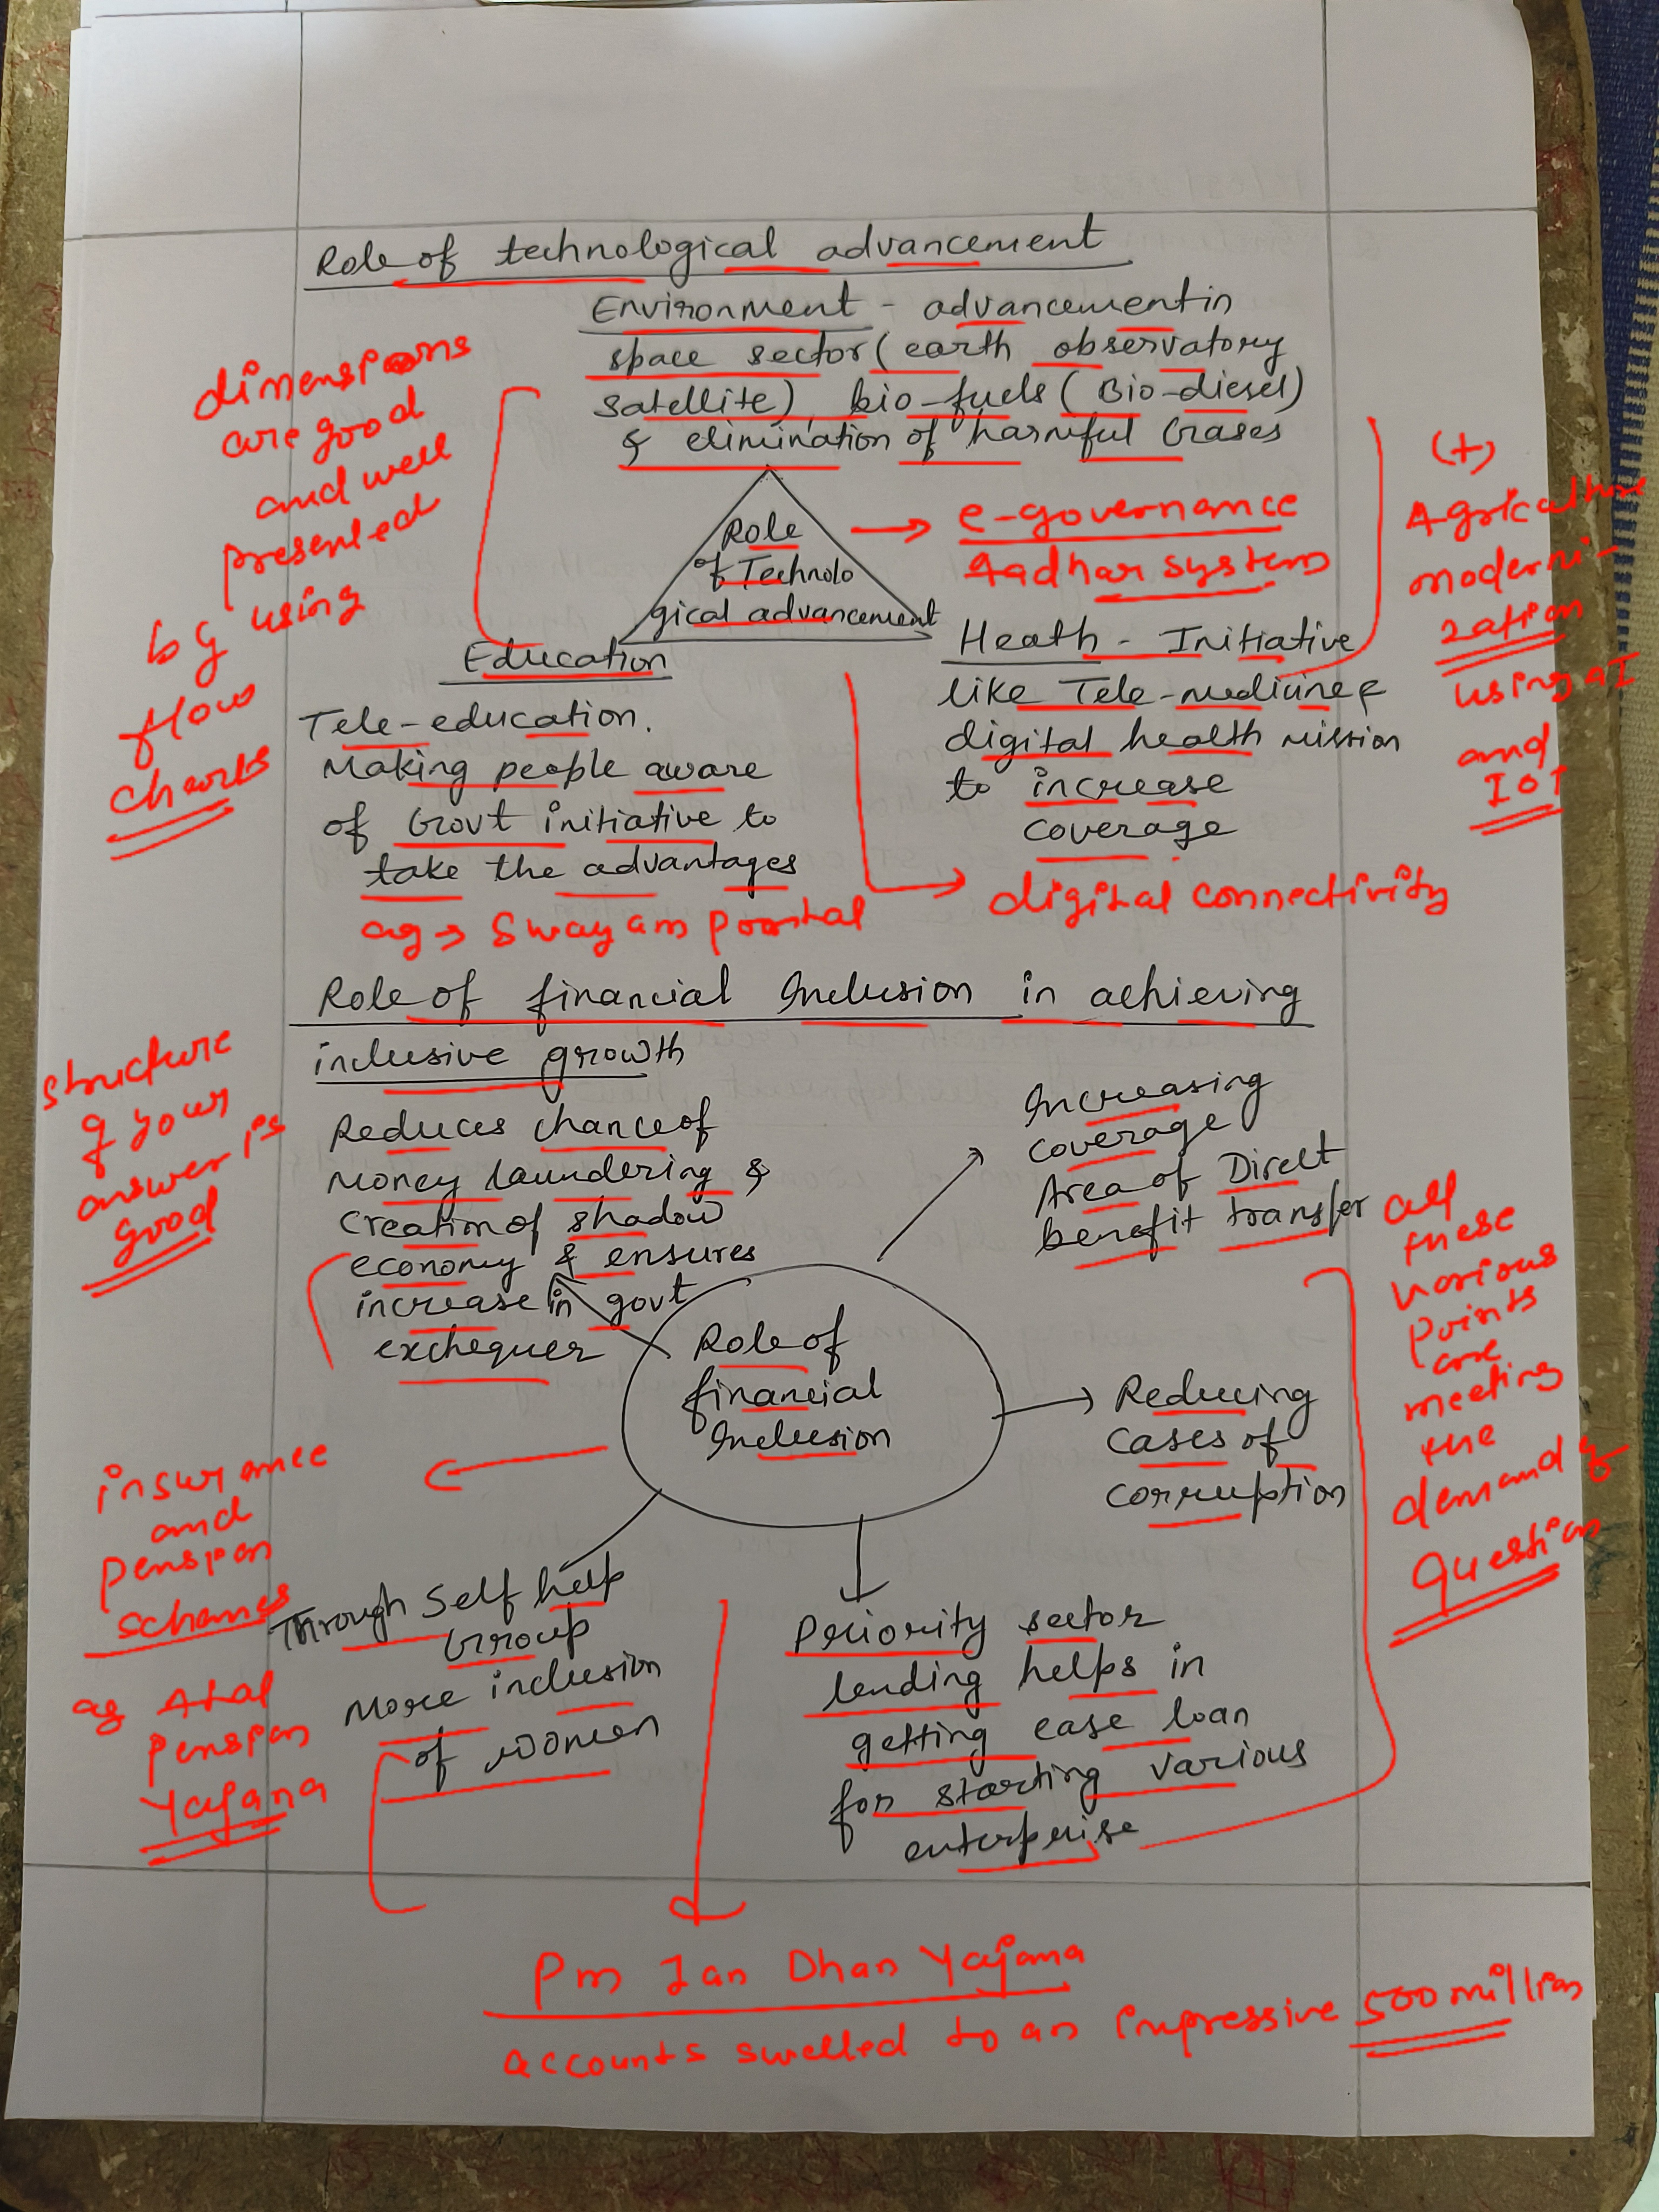 Role of technological advancement
Environment - advancement in
space sector (earth observatory
satellite), bio-fuels (Bio-diesel)
& elimination of harmful Gases
dimensions
are good
and well
presented
by using
flow
charts
Role
of Technolo
gical advancement
→ e-governance
Aadhar system
(+)
Agriculture
moderni-
zation
using AI
and
IOT
Education
Tele-education.
Making people aware
of Govt initiative to
take the advantages
eg → Swayam Portal
Heath - Initiative
like Tele-medicine &
digital health mission
to increase
coverage
digital connectivity
Role of financial Inclusion in achieving
inclusive growth
structure
of your
answer is
good
Reduces chance of
Money laundering &
creation of shadow
economy & ensures
increase in govt
exchequer
Increasing
coverage
Area of Direct
benefit transfer
Role of
financial
Inclusion
Reducing
cases of
corruption
all
these
various
points
are
meeting
the
demand of
question
insurance
and
Pension
schemes
eg Atal
Pension
Yajana
Through Self help
Group
More inclusion
of women
Priority sector
lending helps in
getting ease loan
for starting various
enterprise
Pm Jan Dhan Yajana
accounts swelled to an impressive 500 million